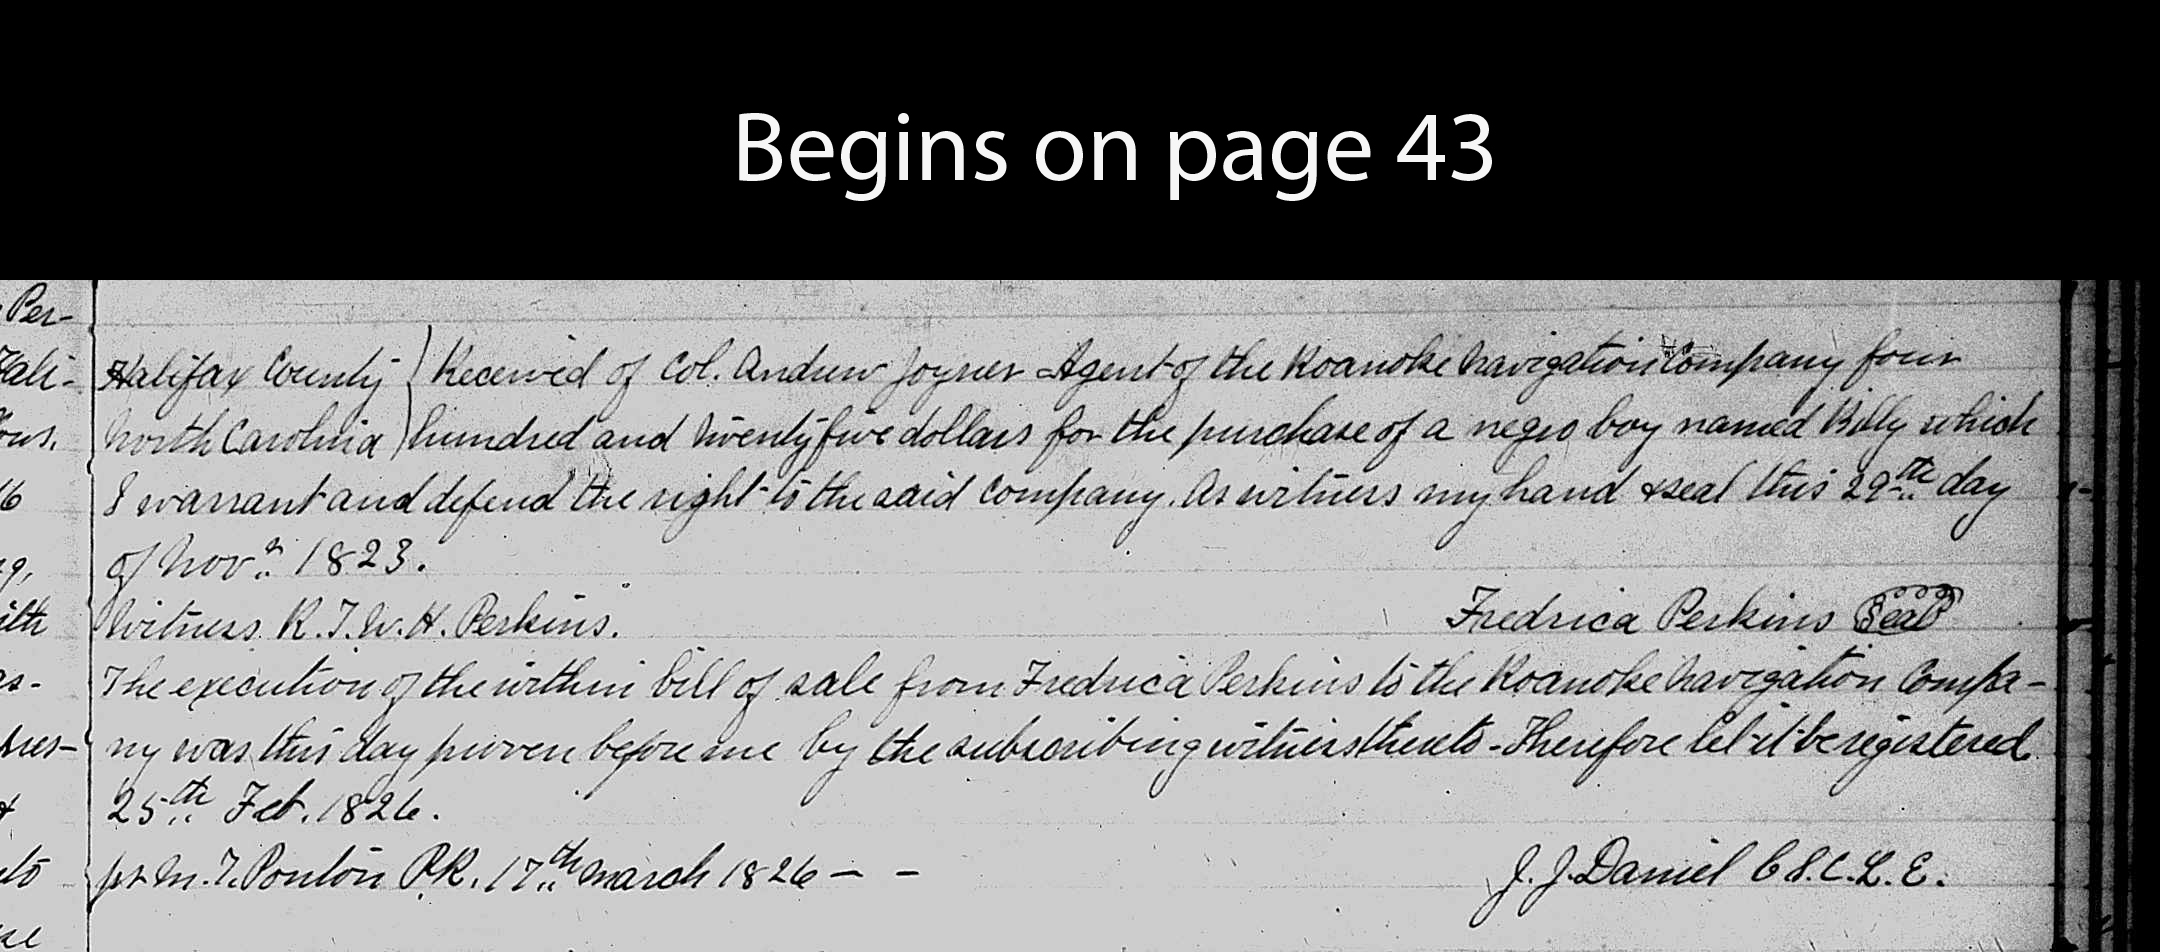 Begins on page 43
Per-
Hali-
Halifax County ) Received of Col. Andrew Joyner - Agent of the Roanoke Navigation Company four
North Carolina ) hundred and twenty five dollars for the purchase of a negro boy named Billy which
I warrant and defend the right to the said Company. As witness my hand & seal this 29th day
of Novr. 1823.
Witness. R.T.W.H. Perkins. Fredrica Perkins Seal
The execution of the within bill of sale from Fredrica Perkins to the Roanoke Navigation Compa-
ny was this day proven before me by the subscribing witness thereto - Therefore let it be registered
25th Feb. 1826.
pr M.T. Ponton P.R. 17th March 1826 - - J. J. Daniel C.S.C.L.E.